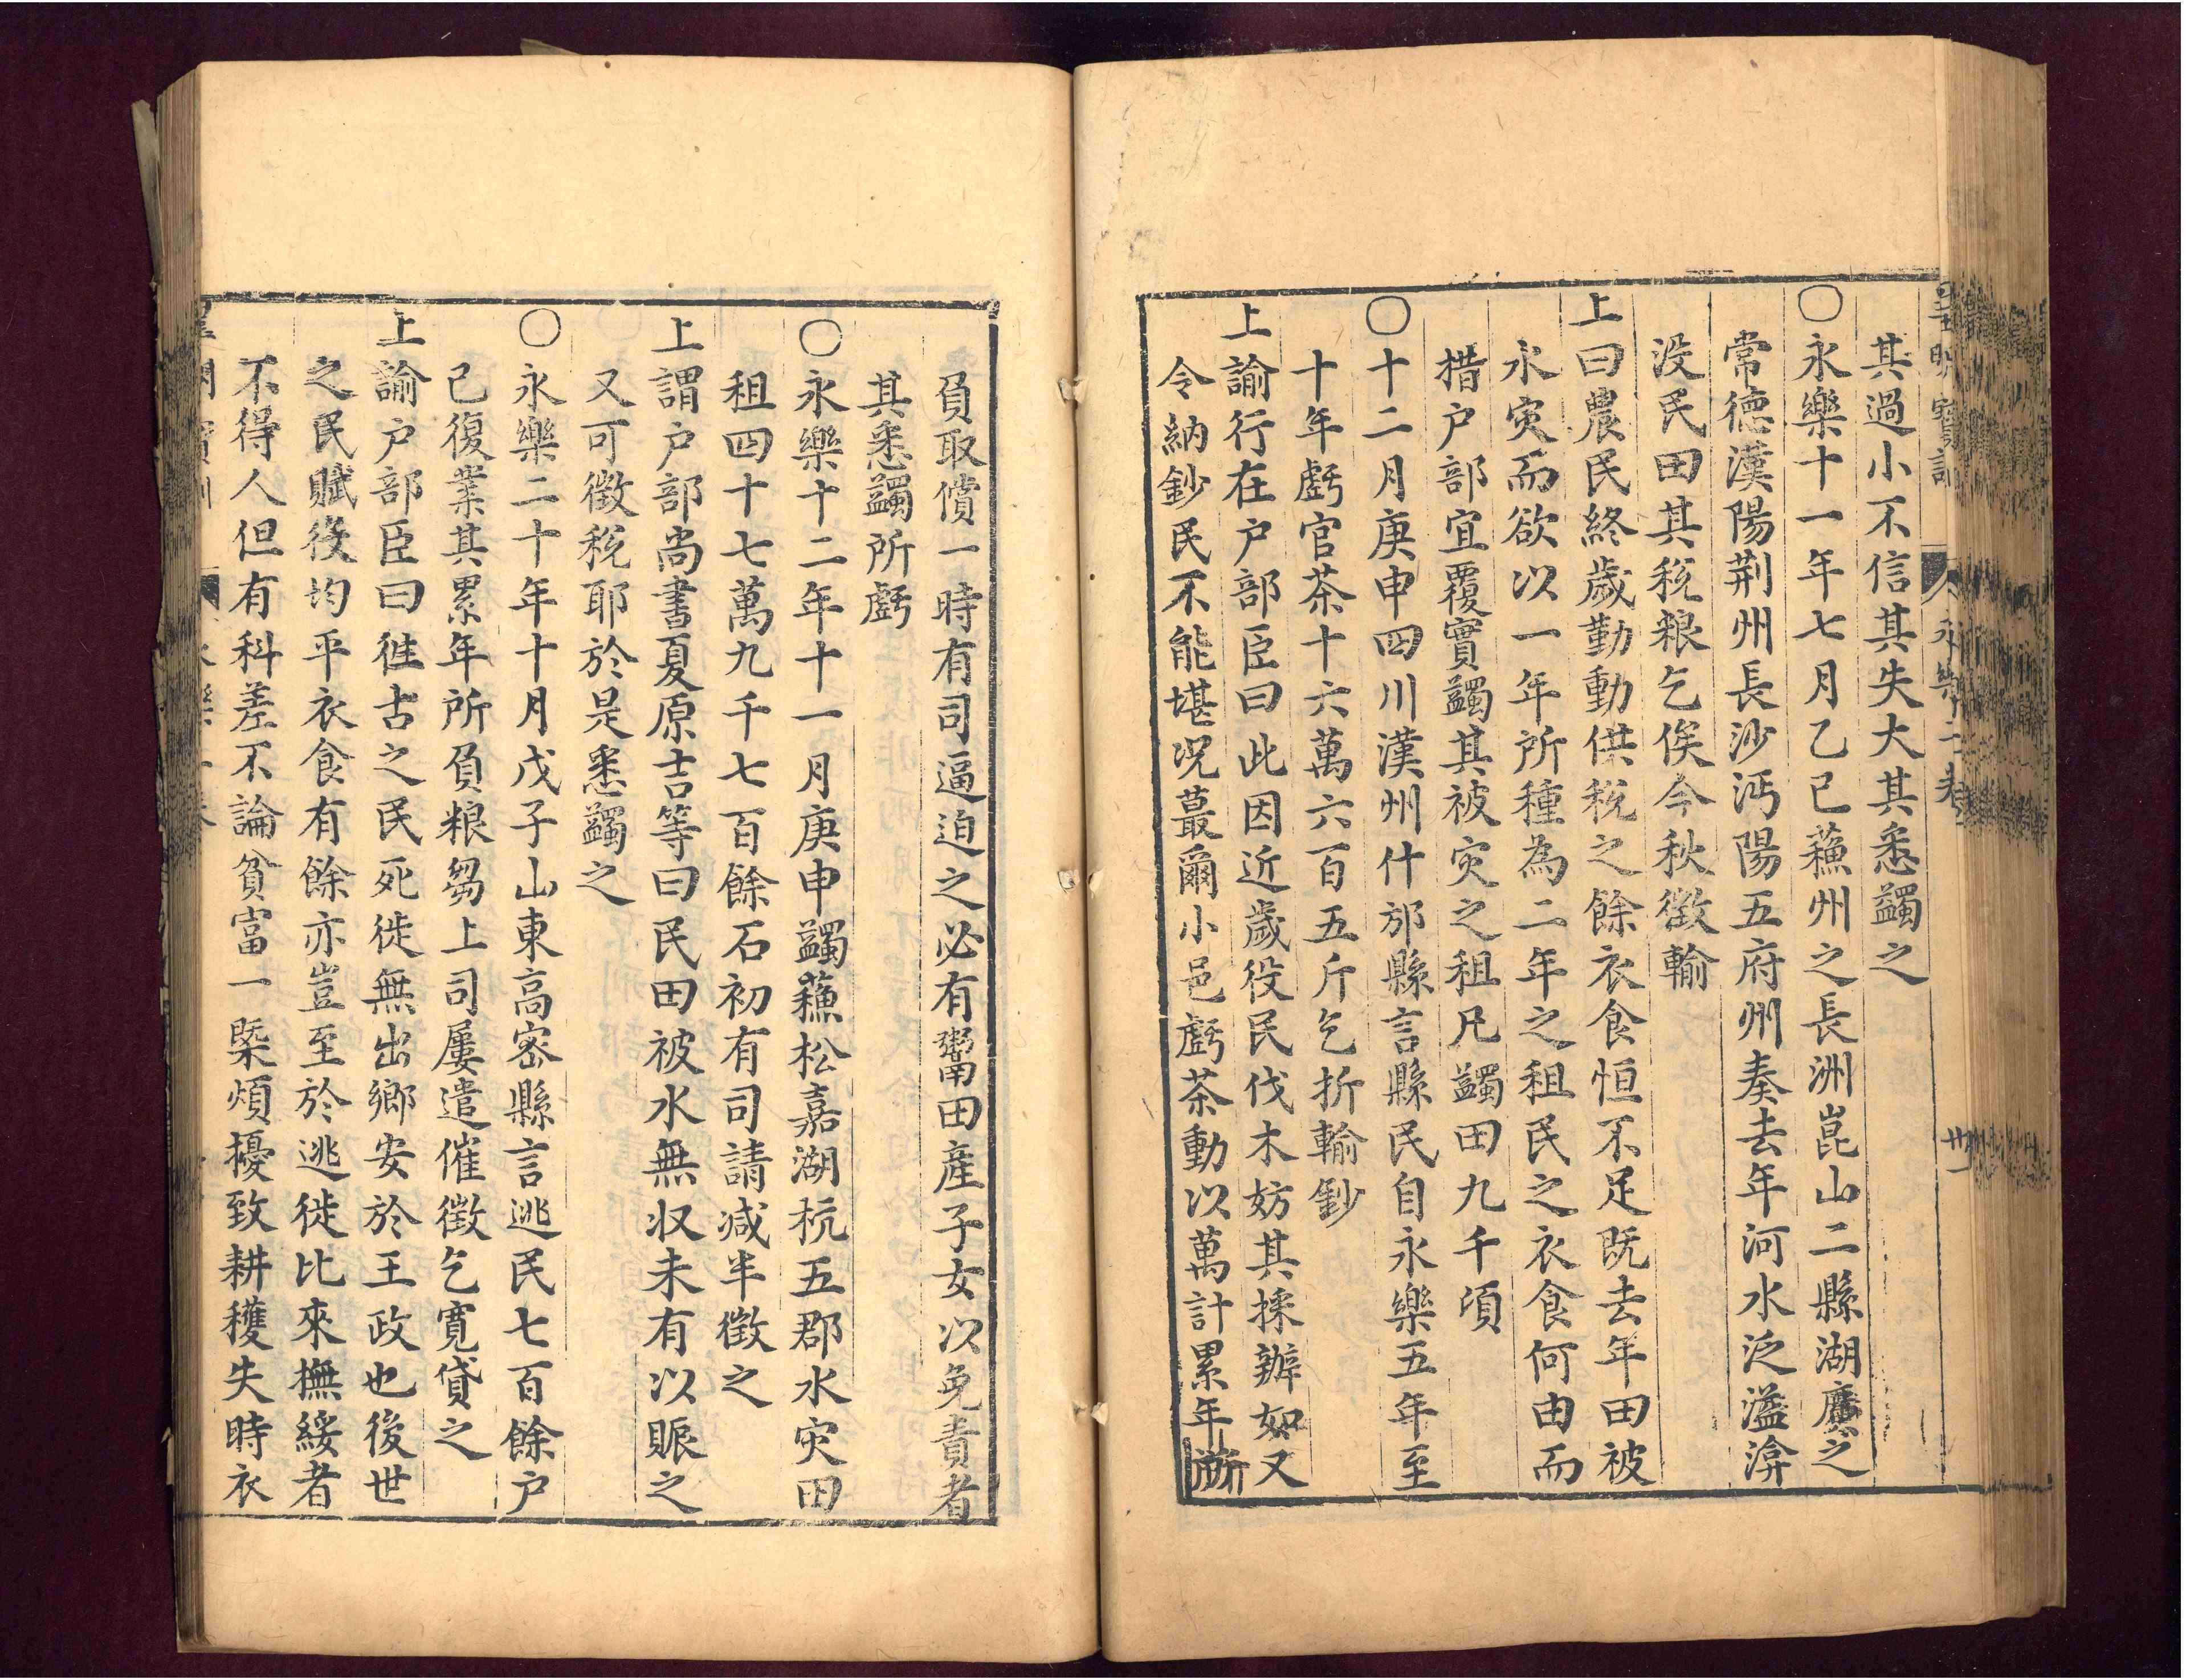 皇明寳訓 永樂二卷 卅一
其過小不信其失大其悉蠲之
○永樂十一年七月乙巳蘓州之長洲崑山二縣湖廣之
常德漢陽荆州長沙沔陽五府州奏去年河水泛溢渰
没民田其稅粮乞俟今秋徵輸
上曰農民終歲勤動供稅之餘衣食恒不足既去年田被
水灾而欲以一年所種為二年之租民之衣食何由而
措户部宜覆實蠲其被灾之租凡蠲田九千頃
○十二月庚申四川漢州什邡縣言縣民自永樂五年至
十年虧官茶十六萬六百五斤乞折輸鈔
上諭行在户部臣曰此因近歲役民伐木妨其採辦如又
令納鈔民不能堪况蕞爾小邑虧茶動以萬計累年所
負取償一時有司逼迫之必有鬻田産子女以免責者
其悉蠲所虧
○永樂十二年十一月庚申蠲蘓松嘉湖杭五郡水灾田
租四十七萬九千七百餘石初有司請減半徵之
上謂户部尚書夏原吉等曰民田被水無収未有以賑之
又可徵稅耶於是悉蠲之
○永樂二十年十月戊子山東高密縣言逃民七百餘户
已復業其累年所負粮芻上司屢遣催徵乞寛貸之
上諭户部臣曰徃古之民死徙無出鄉安於王政也後世
之民賦役均平衣食有餘亦豈至於逃徙比來撫綏者
不得人但有科差不論貧富一槩煩擾致耕穫失時衣